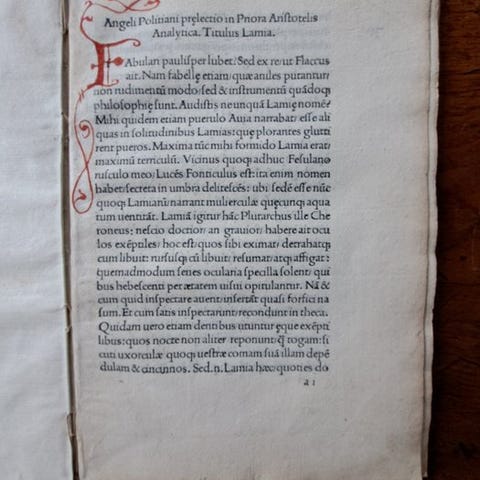 Angeli Politiani prelectio in Priora Aristotelis
Analytica. Titulus Lamia.
FAbulari paulisper lubet/ Sed ex re/ut Flaccus
ait. Nam fabellę etiam/ quæ aniles putantur/
non rudimentū modo/sed & instrumentū quādoq;
philosophię sunt. Audistis ne unquā Lamię nomē?
Mihi quidem etiam puerulo Auia narrabat/ esse ali
quas in solitudinibus Lamias: quę plorantes glutti
rent pueros. Maxima tūc mihi formido Lamia erat:
maximū terriculū. Vicinus quoq; adhuc Fesulano
rusculo meo/ Lucēs Fonticulus est: ita enim nomen
habet/ secreta in umbra delitescēs: ubi sedē esse nūc
quoq; Lamiarū narrant mulierculæ quęcunq; aqua
tum uentitāt. Lamiā igitur hāc Plutarchus ille Che
roneus: nescio doctior/ an grauior/ habere ait ocu
los exēptiles/ hoc est/ quos sibi eximat/ detrahatq;
cum libuit: rursusq; cū libuit/ resumat/ atq; affigat:
quemadmodum senes ocularia specilla solent/ qui
bus hebescenti per ætatem uisui opitulantur. Nā &
cum quid inspectare auent/ insertāt quasi forfici na
sum. Et cum satis inspectarunt/ recondunt in theca.
Quidam uero etiam dentibus utuntur ęque exēpti
libus: quos nocte non aliter reponunt/ q̄ togam: si
cuti uxorculæ quoq; uestræ comam suā illam depē
dulam & cincinnos. Sed.n. Lamia hæc/ quoties do
a i